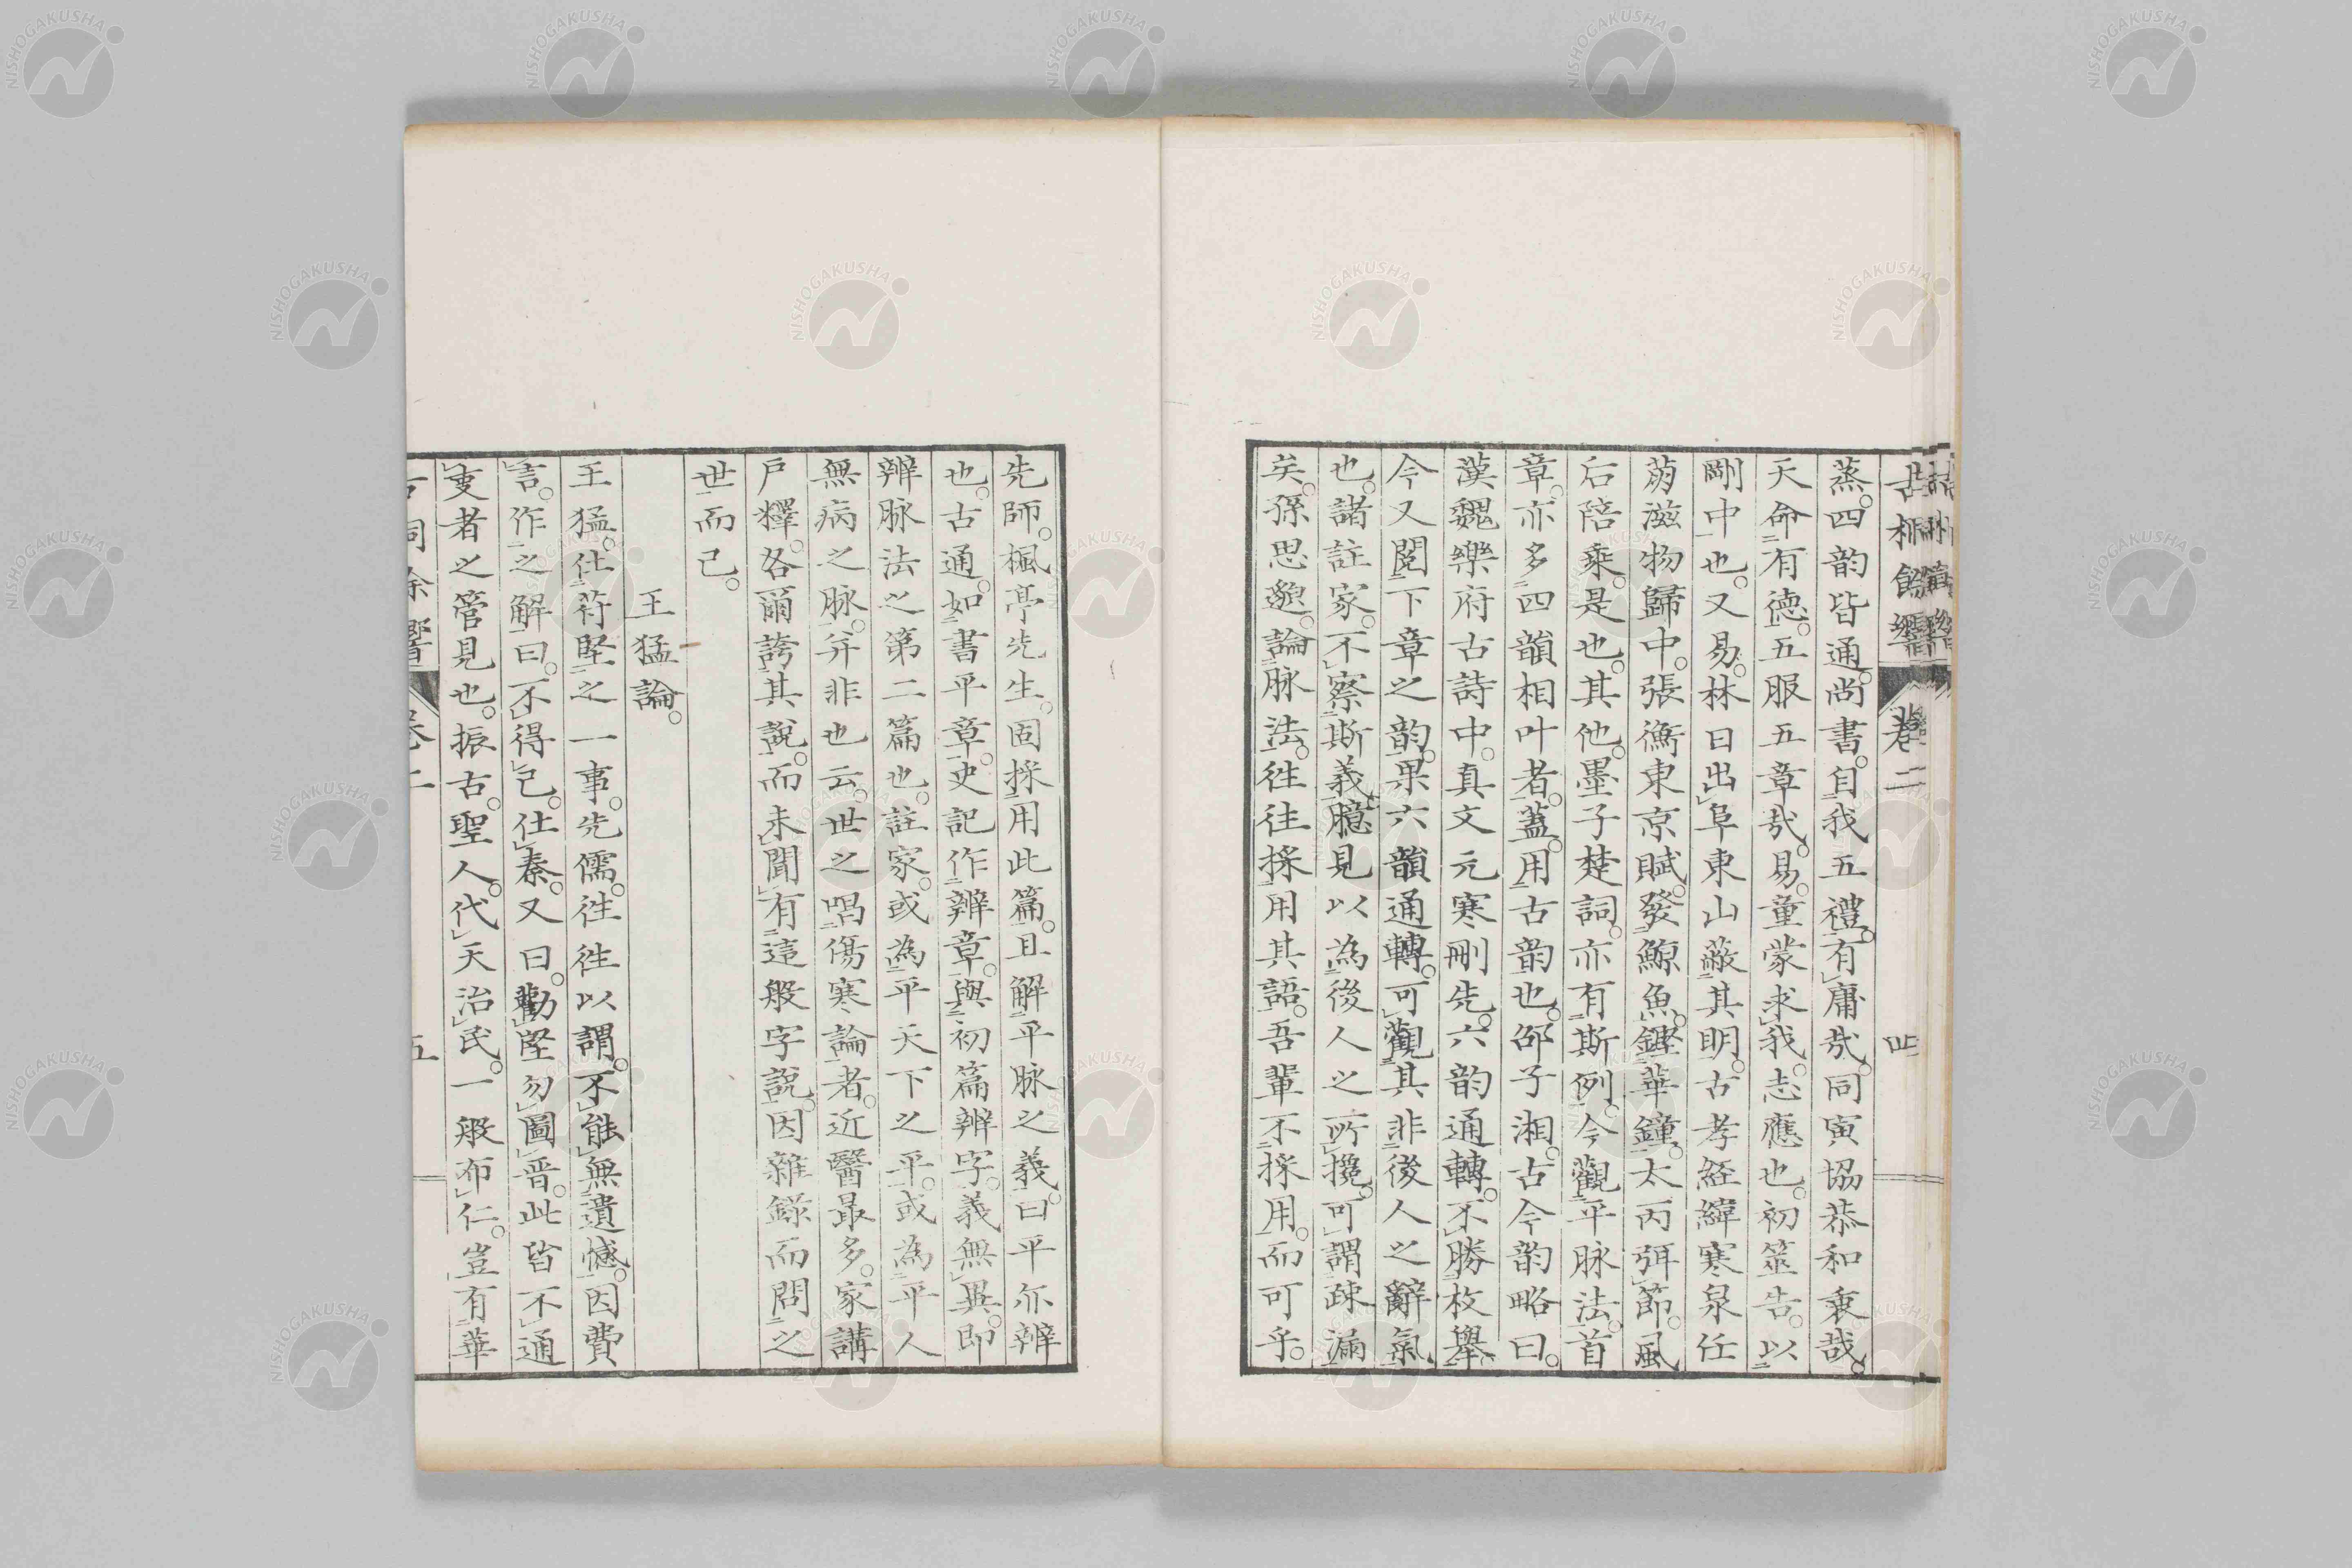 古桐餘響 卷二 四
蒸。四韵皆通。尚書。自我五禮。有庸㦲。同寅協恭和衷哉。
天命有德。五服五章㦲。易。童蒙求我。志應也。初筮告。以
剛中也。又易。林日出阜東山蔽其明。古孝経緯寒泉任
萌滋物歸中。張衡東京賦。發鯨魚。鏗華鐘。太丙弭節。風
后陪乘。是也。其他。墨子楚詞。亦有斯例。今觀平脉法。首
章。亦多四韻相叶者。蓋。用古韵也。邵子湘。古今韵略曰。
漢魏樂府古詩中。真文元寒刪先。六韵通轉。不勝枚舉。
今又閲下章之韵。果六韻通轉。可觀其非後人之辭氣
也。諸註家。不察斯義。臆見以為後人之所攙。可謂疎漏
矣。孫思邈。論脉法。徃徃採用其語。吾輩不採用。而可乎。
先師。楓亭先生。固採用此篇。且解平脉之義。曰平亦辨
也。古通。如書平章。史記作辨章。與初篇辨字。義無異。即
辨脉法之第二篇也。註家。或為平天下之平。或為平人
無病之脉。并非也云。世之唱傷寒論者。近醫最多。家講
戸釋。各爾誇其說。而未聞有這般字說。因雜錄而問之
世而已。
王猛論。
王猛。仕苻堅之一事。先儒。徃徃以謂。不能無遺憾。因費
言。作之解曰。不得已。仕秦。又曰。勸堅勿圖晋。此皆不通
叓者之管見也。振古。聖人。代天治民。一般布仁。豈有華
古桐餘響 卷二 五